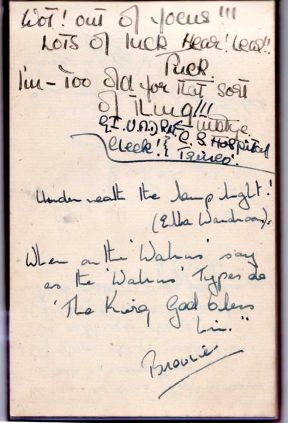 Wot! out of focus!!!
Lots of luck Hear! Hear!!
Puck.
I'm - Too old for that sort
of Thing!!!
Hospital
Cheek!
Underneath the lamp light!
(Ella
When on the 'Walrus' say
as the 'Walrus' Types do
'The King God bless
him."
Brownie